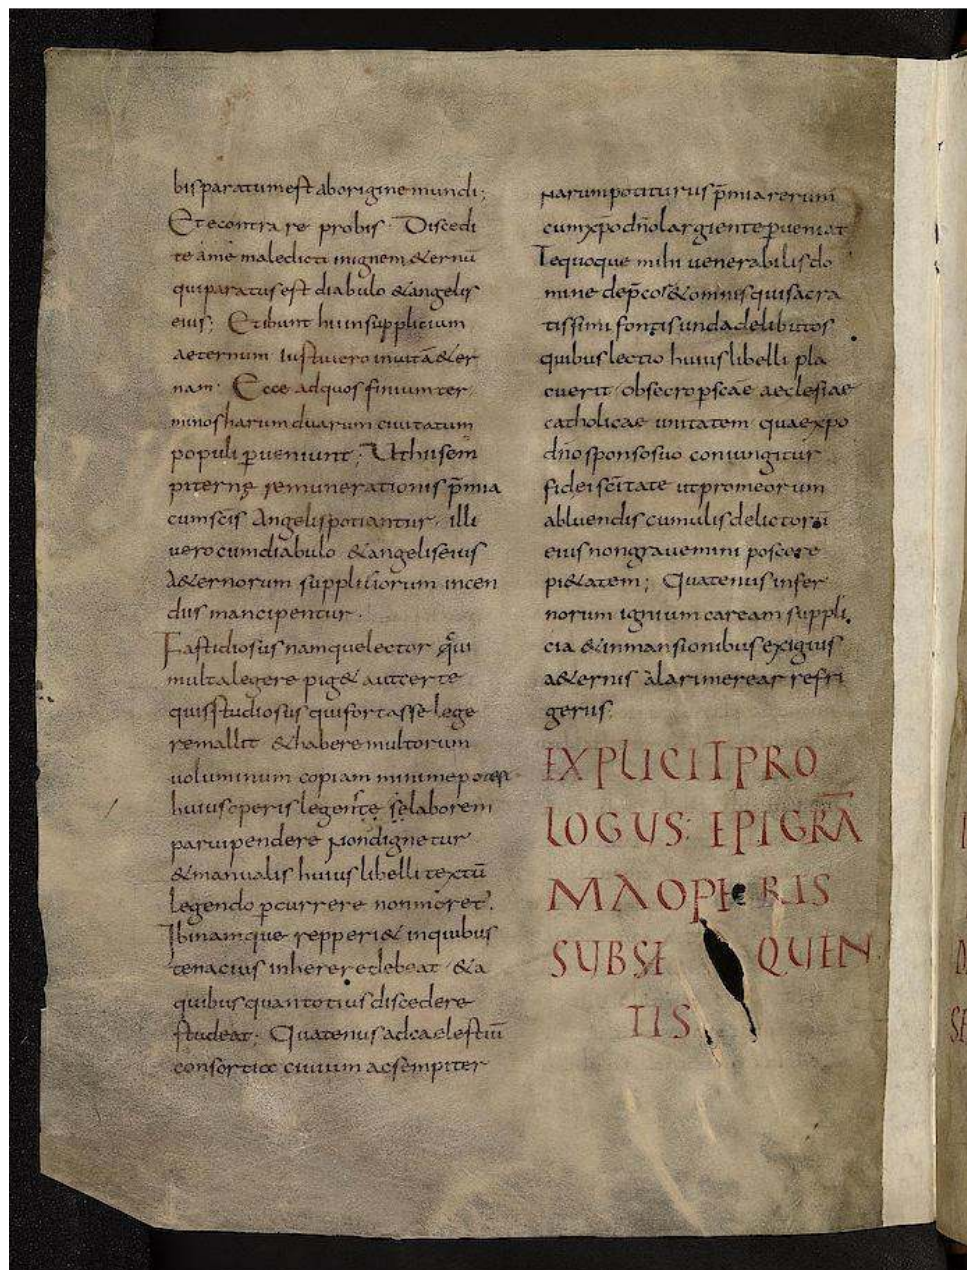 bisparatumest aborigine mundi;
Et econtra re probis· Discedi
te áme maledicti inignem &ernū
quiparatusest diabulo & angelis
eius; Etibunt hiinsupplicium
aeternum iustivero inuitā &er
nam· Ecce adquosfiniumter
minosharum duarum ciuitatum
populi ꝑueniunt; Uthiisem
piternę remunerationis p̄mia
cumsc̄is Angelispotiantur· illi
uerocumdiabulo & angeliseius
A&ernorum suppliciorum incen
diis mancipentur.
Fastidiosus namquelector qui
multalegere pig& autcerte
quisstudiosus quifortasse lege
remallit & habere multorum
uoluminum copiam minimepotest·
huiusoperis legente se laborem
paruipendere Nondignetur
& manualis huius libelli textū
legendo ꝑcurrere nonmoret'.
Ibinamque repperi& inquibus
tenacius inhereredebeat & a
quibusquantotius discedere
studeat; Quatenus adcaelestiū
consortia ciuium acsempiter
Narumpotiturus p̄mia rerum
cumxp̄o dn̄o largiente ꝑueniat
Tequoque mihi uenerabilis do
mine dep̄cor & omnis quisacra
tissimi fontis unda delibutos
quibus lectio huius libelli pla
cuerit· obsecro pscae aeclesiae
catholicae unitatem quaexpo
dn̄o sponsosuo coniungitur
fidei sc̄itate utpromeorum
abluendis cumulis delictorū
eius nongrauemini poscere
pi&atem; Quatenus infer
norum ignium caream suppli
cia & inmansionibus exiguis
a&ernis alarimerear refri
geriis.
EXPLICIT PRO
LOGUS· EPIGRĀ
MA OPERIS
SUBSE QUEN
TIS